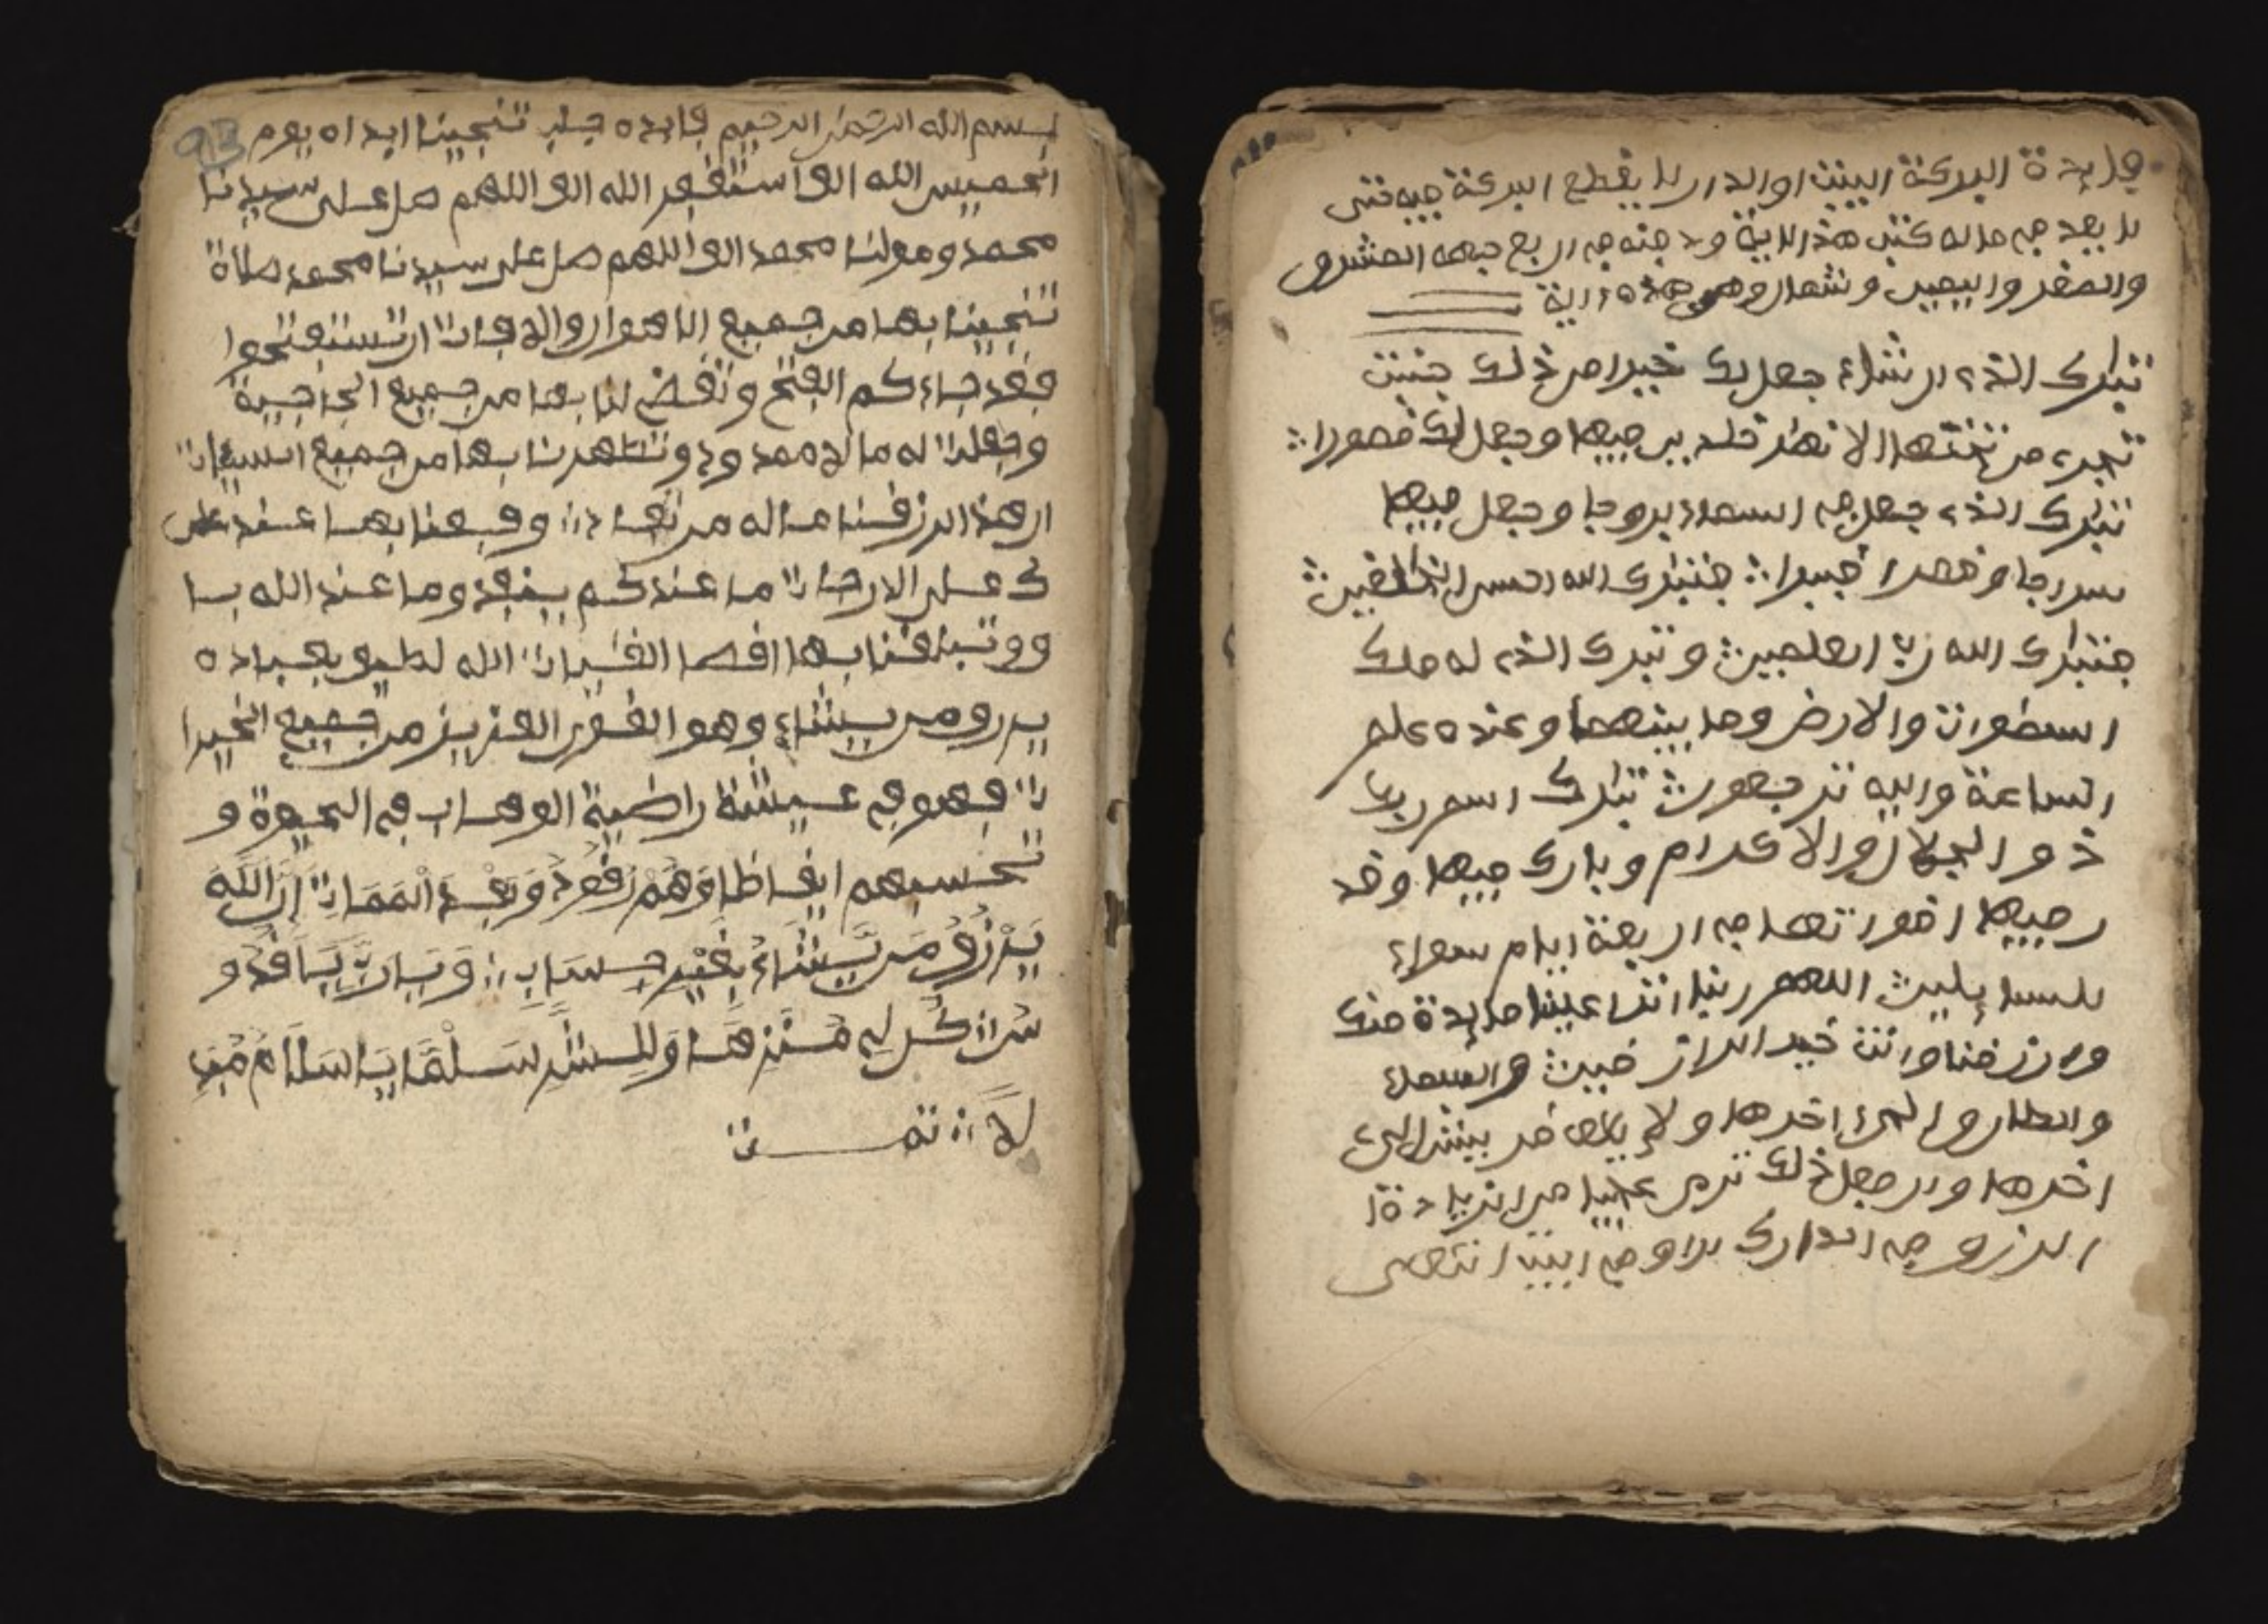 فايدة البركة البيت او الدار لا يقطع البركة فيه فتى
كتب هذ الاية ودفنه في اربع جهه المشرق
والمغر واليمين وشمال وهي هذه الاية
تبرك الذي ان شاء جعل لك خيرا من ذلك جنت
تجري من تحتها الانهر خلدين فيها وجعل لك قصورا
تبرك الذي جعل في السماء بروجا وجعل فيها
سراجا وقمرا منيرا فتبرك الله احسن الخلقين
فتبرك الله رب العلمين وتبرك الذي له ملك
السموات والارض وما بينهما وعنده علم
الساعة واليه ترجعون تبرك اسم ربك
ذو الجلال والاكرام وبارك فيها وقد
ر فيها اقواتها في اربعة ايام سواء
للسايلين اللهم ربنا انزل علينا مايدة منك
وارزقنا وانت خير الرازقين والسماء
والطارق الى اخرها ولايلاف قريش الى
اخرها وان فعل ذلك ترى عليها من الزيادة
الرزق في الدارك او في البيت انتهى
بسم الله الرحمن الرحيم فايده جلب تنجينا ابداه يوم
الخميس الله الف استغفر الله الف اللهم صل على سيدنا
محمد ومولنا محمد الف اللهم صل على سيدنا محمد صلاة
تنجينا بها من جميع الاهوال والافات ان تستفتحوا
فقد جاءكم الفتح وتقض لنا بها من جميع الحاجية
وجعلت له مالا ممدودا وتطهرنا بها من جميع السيئات
ان هذا لرزقنا ماله من نفاد ورفعنا بها عند
ك على الدرجات ما عندكم ينفد وما عند الله با
ق وتبلغنا بها اقصا الغيات الله لطيف بعباده
يرزق من يشاء وهو القوي العزيز من جميع الخيرا
ت فهو في عيشة راضية الوهاب في الحيوة و
تحسبهم ايقاظا وَهُمْ رُقُودٌ وَبَعْدَ الْمَمَاتِ إِنَّ اللَّهَ
يَرْزُقُ مَن يَّشَاءُ بِغَيْرِ حِسَابٍ وَيَا رَبِّ
كُن لِي وَلِلسِّتْرِ يَا سَلَامُ مُقْبِ
لَا تمت